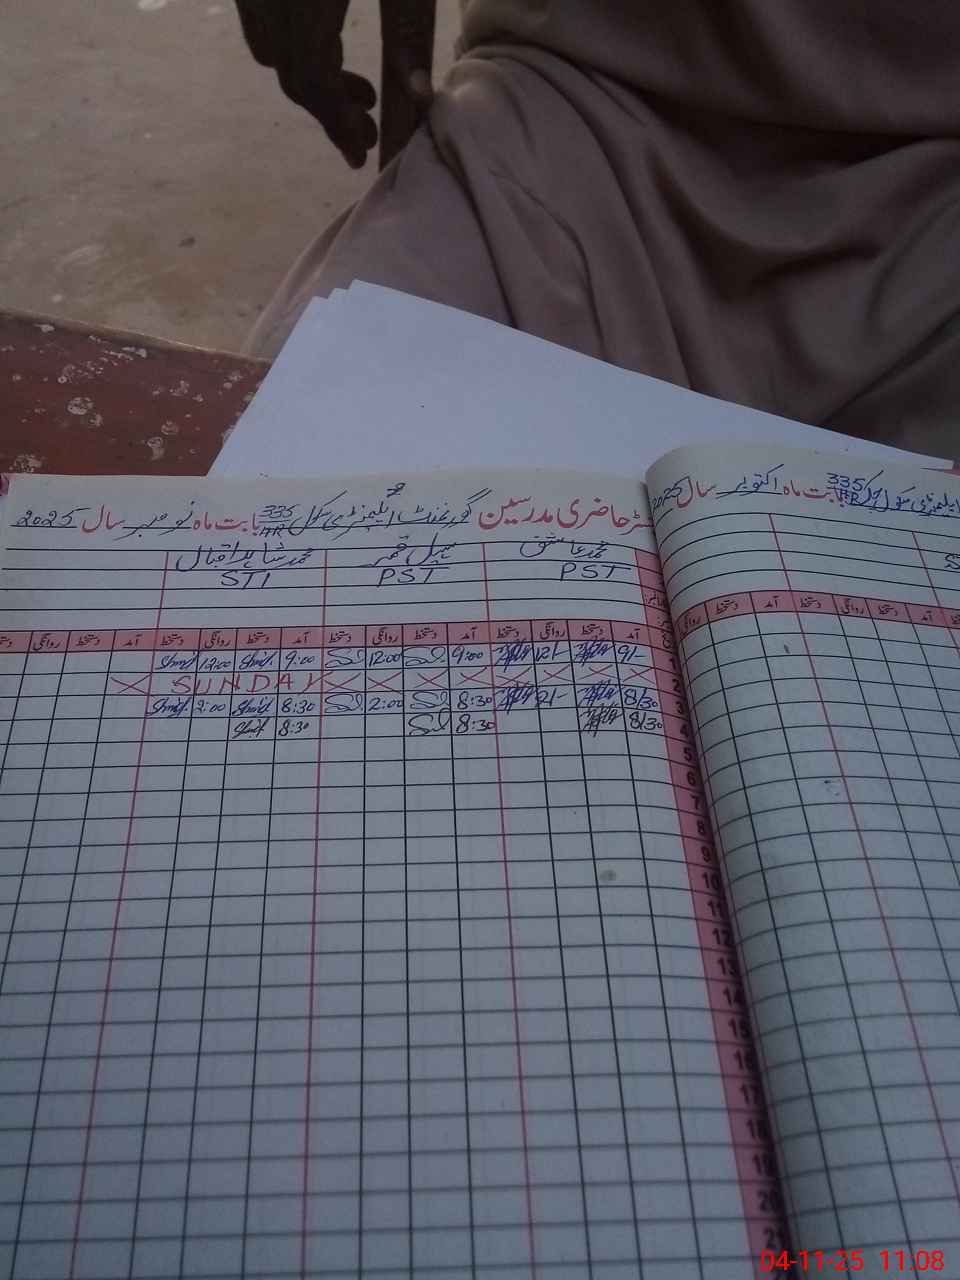 رجسٹر حاضری مدرسین گورنمنٹ ایلیمنٹری سکول 335/HR بابت ماہ نومبر سال 2025
محمد عاشق سہیل قمر محمد شاہد اقبال
PST PST STI
آمد دستخط روانگی دستخط آمد دستخط روانگی دستخط آمد دستخط روانگی دستخط آمد دستخط روانگی دستخط
1 9/- 12/- 9:00 12:00 9:00 Shahid 12:00 Shahid
2 SUNDAY
3 8/30 2/- 8:30 2:00 8:30 Shahid 2:00 Shahid
4 8/30 8:30 8:30 Shahid
5
6
7
8
9
10
11
12
13
14
15
16
17
18
19
20
21
ایلیمنٹری سکول 335/HR بابت ماہ اکتوبر سال 2025
S
روانگی دستخط آمد دستخط روانگی دستخط آمد
04-11-25 11:08